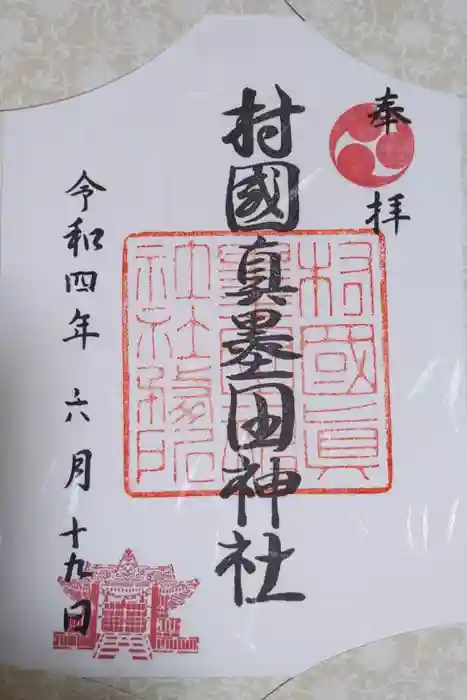 奉拝
村國真墨田神社
村國真墨田神社社務所
令和四年六月十九日